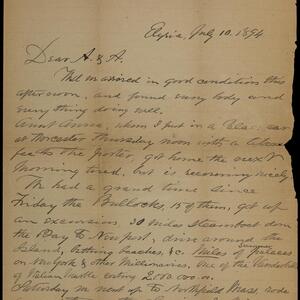 Elyria, July 10. 1894
Dear A. & A.
We arrived in good condition this
afternoon, and found every body and
every thing doing well.
Aunt Anna, whom I put in a Palace car
at Worcester Thursday noon with a
fee to the porter, got home the next
morning tired, but is recovering nicely
We had a grand time since
Friday the Bullocks, 15 of them, got up
an excursion. 30 miles steamboat down
the Bay to Newport, drive around the
Island, Bathing beaches, &c. Miles of Summer palaces
on New York & other Millionaires, one of the Vanderbilts
of Vatican Marble costing 2,000,000.
Saturday we went up to Northfield Mass, rode